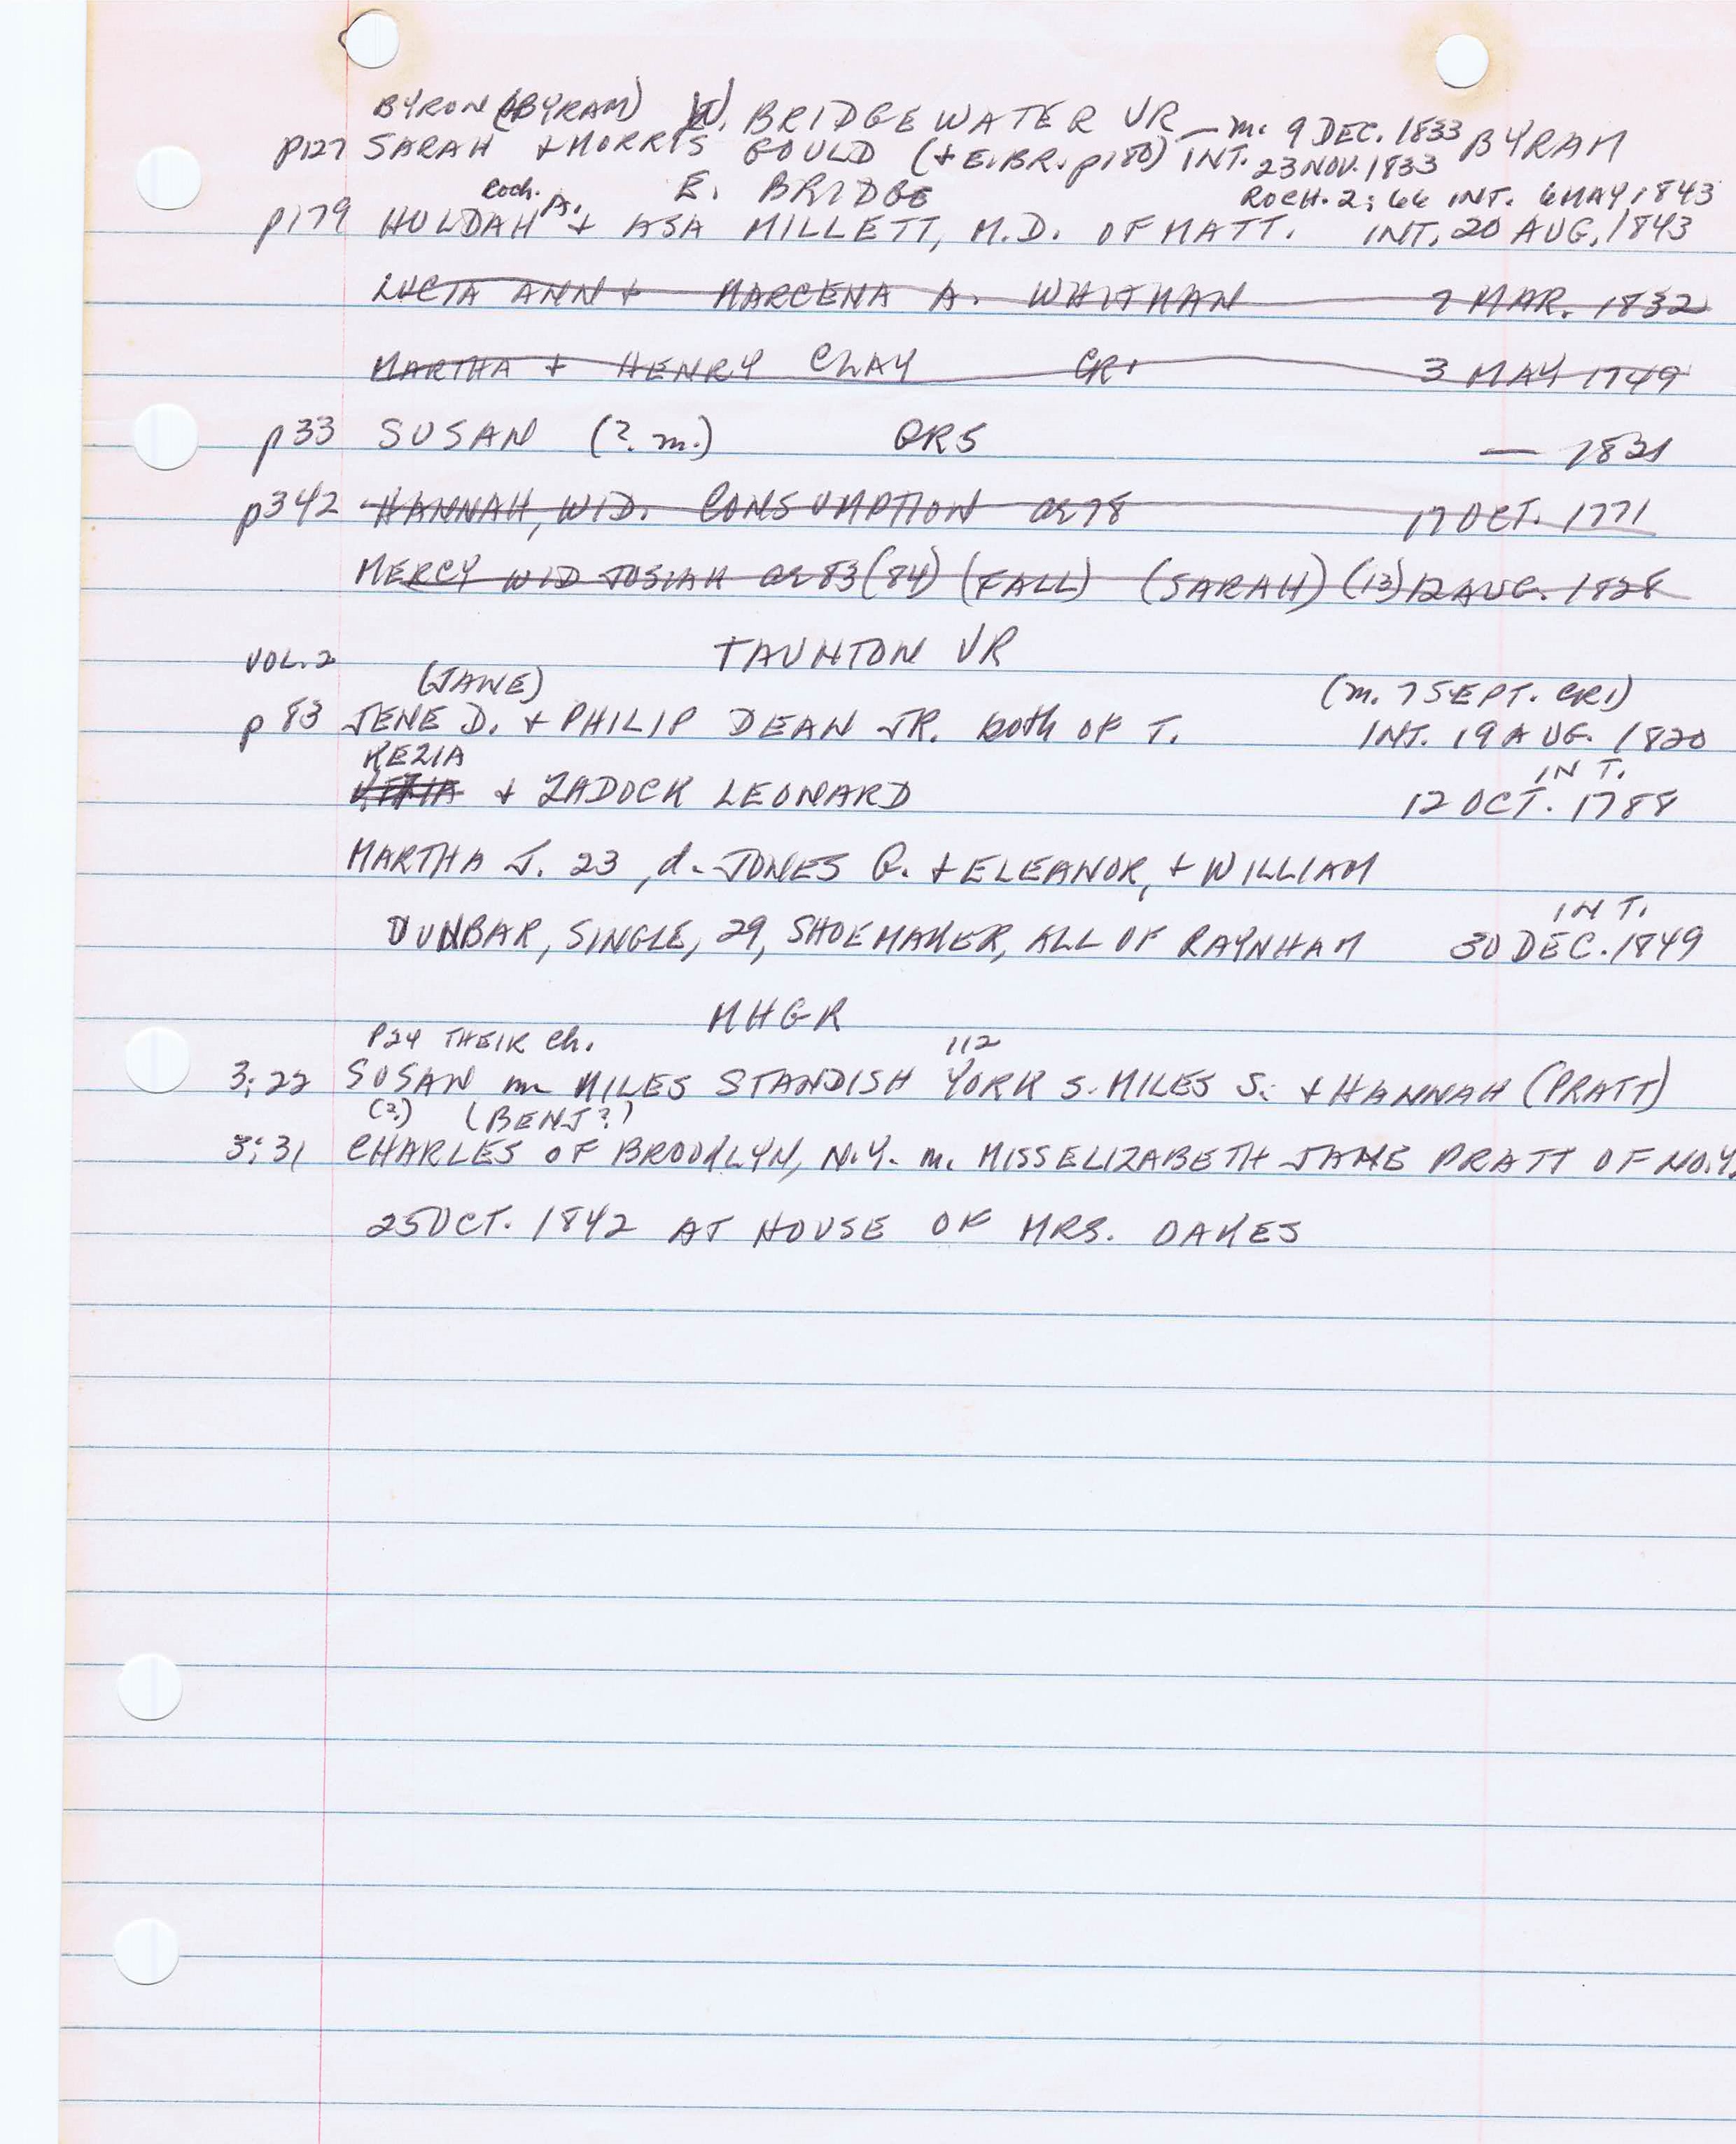 BYRON (BYRAM) W. BRIDGEWATER VR — m. 9 DEC. 1833 BYRAM
p127 SARAH + MORRIS GOULD (+ E. BR. p180) INT. 23 NOV. 1833
Roch. E. BRIDGE ROCH. 2:66 INT. 6 MAY 1843
p179 HULDAH A. + ASA MILLETT, M.D. OF MATT. INT. 20 AUG. 1843
LUCIA ANN + MARCENA A. WHITMAN 7 MAR. 1832
MARTHA + HENRY CLAY CR1 3 MAY 1749
p33 SUSAN (?. m.) GR5 — 1831
p342 HANNAH, WID. CONSUMPTION ae 78 17 OCT. 1771
MERCY WID JOSIAH ae 83 (84) (FALL) (SARAH) (13) 12 AUG. 1828
VOL. 2 TAUNTON VR
(JANE) (m. 7 SEPT. CR1)
p 83 JENE D. + PHILIP DEAN JR. both OF T. INT. 19 AUG. 1820
KEZIA INT.
+ ZADOCK LEONARD 12 OCT. 1788
MARTHA J. 23, d. JONES G. + ELEANOR, + WILLIAM
INT.
DUNBAR, SINGLE, 29, SHOEMAKER, ALL OF RAYNHAM 30 DEC. 1849
MHGR
P24 THEIR Ch. 112
3:22 SUSAN m MILES STANDISH YORK S. MILES S. + HANNAH (PRATT)
(?) (BENJ?)
3:31 CHARLES OF BROOKLYN, N.Y. m. MISS ELIZABETH JANE PRATT OF NO. Y.
25 OCT. 1842 AT HOUSE OF MRS. OAKES